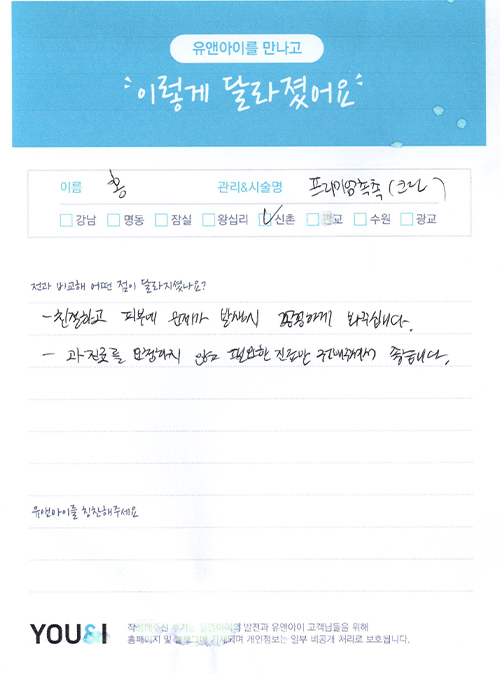 유앤아이를 만나고
이렇게 달라졌어요
이름 홍 관리&시술명 프리미엄촉촉(크라)
강남 명동 잠실 왕십리 신촌 판교 수원 광교
전과 비교해 어떤 점이 달라지셨나요?
- 친절하고 피부에 문제가 발생시 꼼꼼하게 봐주십니다.
- 과진료를 요청하지 않고 필요한 진료만 좋습니다.
유앤아이를 칭찬해주세요
YOU&I
작성해주신 후기는 유앤아이의 발전과 유앤아이 고객님들을 위해
홈페이지 및 블로그에 기재되며 개인정보는 일부 비공개 처리로 보호됩니다.